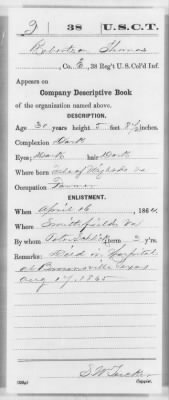 38 U.S.C.T.
Robertson Thomas
, Co. E, 38 Reg't U.S. Col'd Inf.
Appears on
Company Descriptive Book
of the organization named above.
DESCRIPTION.
Age 30 years; height 5 feet 8 1/2 inches.
Complexion Dark
Eyes Dark hair Dark
Where born Isle of Wight Co Va
Occupation Farmer
ENLISTMENT.
When April 16, 1864.
Where Smithfield Va
By whom term 3 y'rs.
Remarks: Died in Hospital
at Brownsville Texas
Aug 17, 1865
S W Tucker
Copyist.